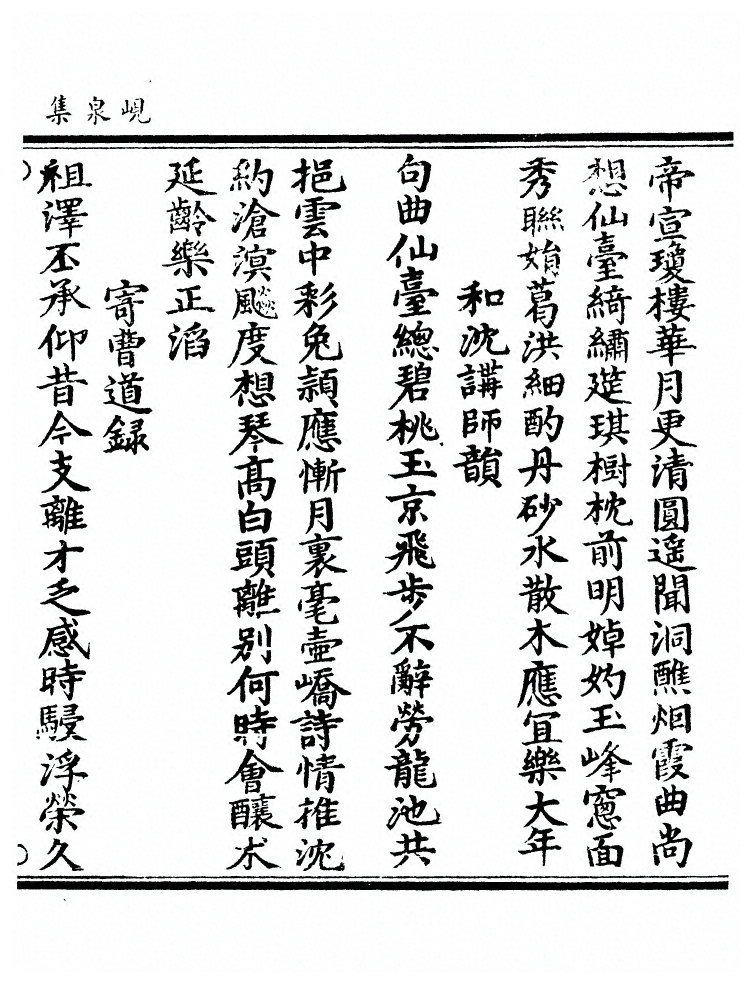 峴泉集
帝宣瓊樓華月更清圓遙聞洞醮炬霞曲尚
想仙臺綺繡筵琪樹枕前明婥妁玉峰窻面
秀聯娟葛洪細酌丹砂水散木應宜樂大年
和沈講師韻
句曲仙臺總碧桃玉京飛步不辭勞龍池共
挹雲中彩兔潁應慚月裏毫壺嶠詩情推沈
約滄溟飈度想琴高白頭離別何時會釀朮
延齡樂正滔
寄曹道録
祖澤丕承仰昔今支離才乏感時駸浮榮久